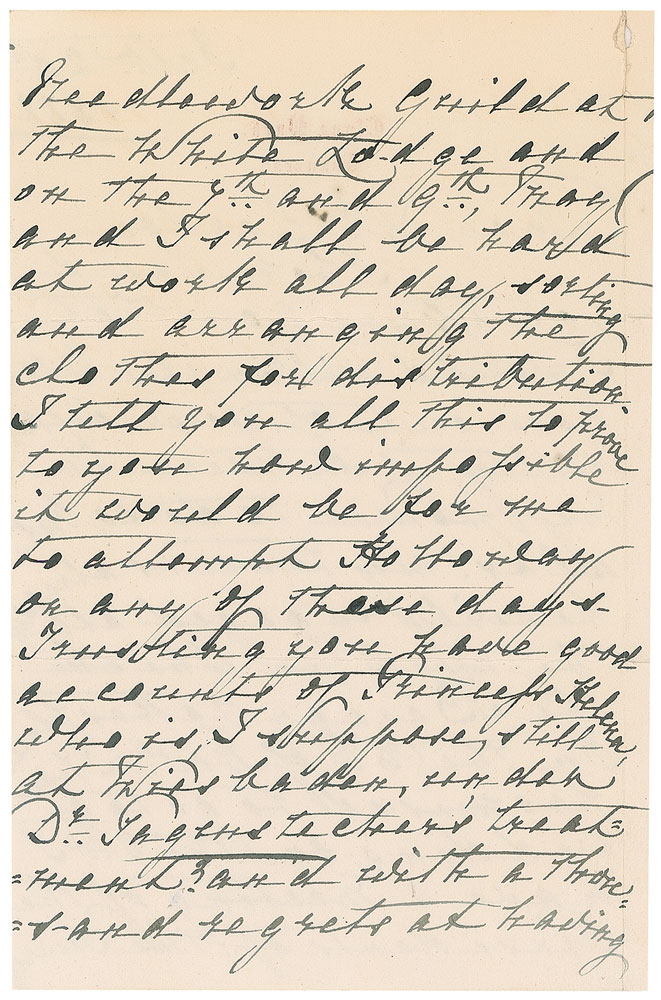 Needlework Guild at
the White Lodge and
on the 7th and 9th, May
and I shall be hard
at work all day, sorting
and arranging the
clothes for distribution
I tell you all this to prove
to you how impossible
it would be for me
to attempt Holloway
on any of these days.
Trusting you have good
accounts of Princess Helena,
who is, I suppose, still
at Wiesbaden, under
Dr. Pagenstecher's treat=
=ment? and with a thou=
=sand regrets at having